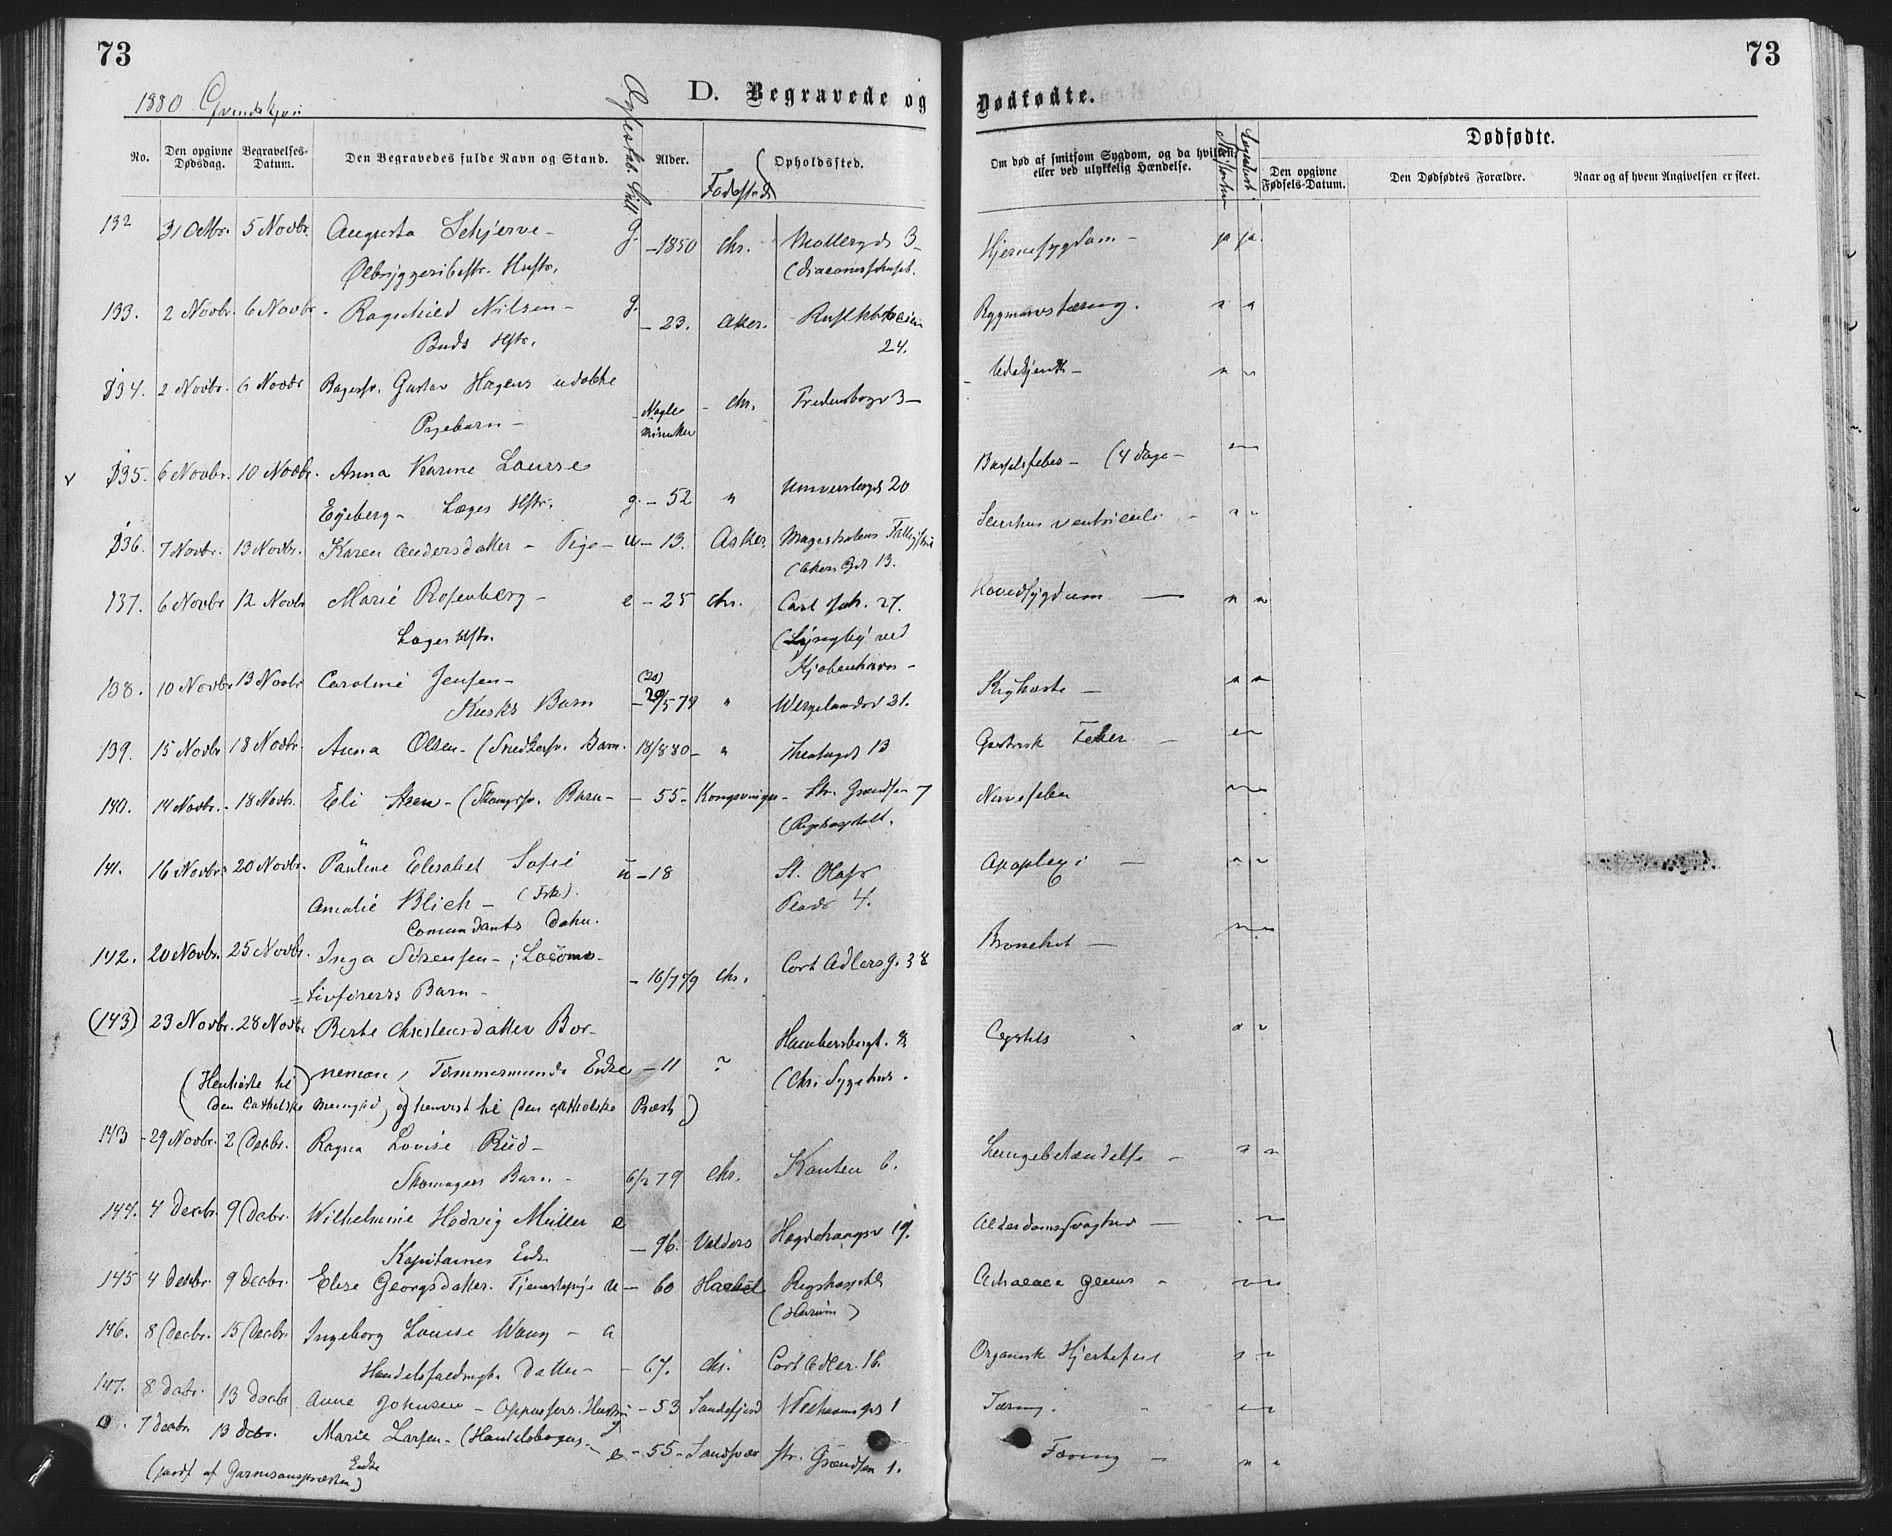 73
73
1880 Qvindekjøn
D. Begravede og Dødfødte.
Dødfødte.
No.
Den opgivne Dødsdag.
Begravelses-Datum.
Den Begravedes fulde Navn og Stand.
Alder.
Fødested
Opholdssted.
Om død af smitsom Sygdom, og da hvilken, eller ved ulykkelig Hændelse.
Den opgivne Fødsels-Datum.
Den Dødfødtes Forældre.
Naar og af hvem Angivelsen er skeet.
132 31 Octbr. 5 Novbr. Augusta Schjerve - g. - 1850 Chr. Møllergd 3 - Hjernesygdom - ja ja.
Ølbryggeribestr. Hustr. (Diaconissehuset.
133. 2 Novbr. 6 Novbr. Ragnhild Nilsen - g. - 23. Aker. Rygmarvstæring.
Buds Hstr. 24.
134. 2 Novbr. 6 Novbr Bagersv. Gustav Hagens udøbte Nogle Minutter - Chr. Fredensborgv 3 - Ubekjendt -
Pigebarn -
135. 6 Novbr. 10 Novbr. Anna Karine Lourse Barselfeber - (4 Dage -
Egeberg - Læges Hstr. g. - 52 " Universitetsgd 20
136. 7 Novbr. 13 Novbr. Karen Andersdatter - Pige - u - 13. Asker. Magistratens Scirrhus ventriculi -
(Akers Gd 13.
137. 6 Novbr 12 Novbr Marie Rosenberg - e - 25 Chr. Carl Joh. 27. Hovedsygdom -
Læges Hstr. (Lyngby ved
Kjøbenhavn -
138. 10 Novbr 13 Novbr Caroline Jensen - Kighoste -
Kusks Barn - 29/5 79 " Wergelandsv 21.
139. 15 Novbr 18 Novbr. Anna Olsen - (Snedkersv. Barn. 18/8 80 - " Theatergd 13 Gastrisk Feber -
140. 14 Novbr. - 18 Novbr. Eli Steen - (Skomgrsv. Barn - - 55 - Kongsvinger - Str. Grændsen 7 Nervefeber
(Rigshospitalt.
141. 16 Novbr. 20 Novbr. Pauline Elisabet Sofie u - 18 St. Olafs Apoplexi -
Amalie Blich - (Frk). Plads 4.
Comandants Datter.
142. 20 Novbr. 25 Novbr. Inga Sørensen - ; Locomo- Bronchit -
tivførers Barn - - 16/7 79 Chr. Cort Adlersg. 38
(143) 23 Novbr. 28 Novbr Berte Christensdatter Bor- Hammersborgt. 9 Cystitis
neman, Tømmermands Enke - 11 ? (Chr. Sygehus.
(Henhørte til
den catholske Menighed, og henvist til den catholske Præst)
143 - 29 Novbr. 2 Decbr. Ragna Lovise Rud - Lungebetændelse -
Skomagers Barn - 6/12 79 Chr. Kanten 6.
144. 4 Decbr. 9 Decbr. Wilhelmine Hedvig Müller e Alderdomssvaghed -
Kapitaines Enke - 96. Valders Hegdehaugsv 19.
145 4 Decbr. 9 Decbr. Elise Georgsdatter. Tjenestepige u - 60 Rigshospitalt
146. 8 Decbr. 15 Decbr. Ingeborg Louise Wang - u Organisk Hjertefeil
Handelsfuldmægt. Datter - - 67. Chr. Cort Adler. 16.
147. 8 Decbr. 13 Decbr Anne Johnsen - Oppassers Hustru - 53 Sandefjord 1 Tæring.
0. 7 Decbr. 13 Decbr. Marie Larsen - (Handelsborgers - e - 55 - Sandsvær Str. Grændsen 1. Tæring -
Enke
(jordf. af Garnisonspræsten)